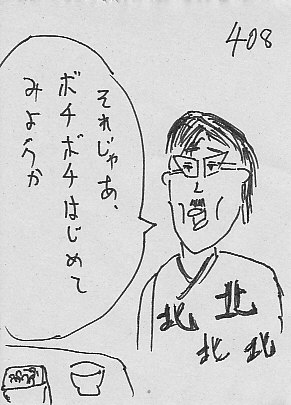 408
それじゃあ、
ボチボチはじめて
みようか
北
北
北
北